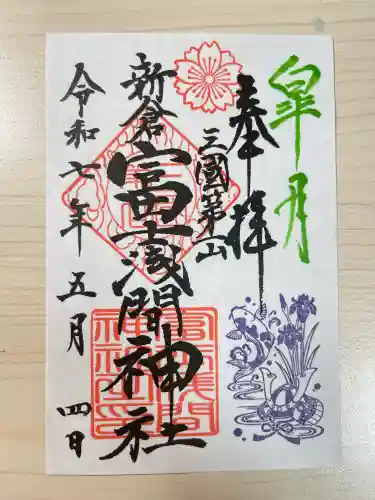 皐月
奉拝
三國第一山
新倉
富士浅間神社
令和七年五月四日